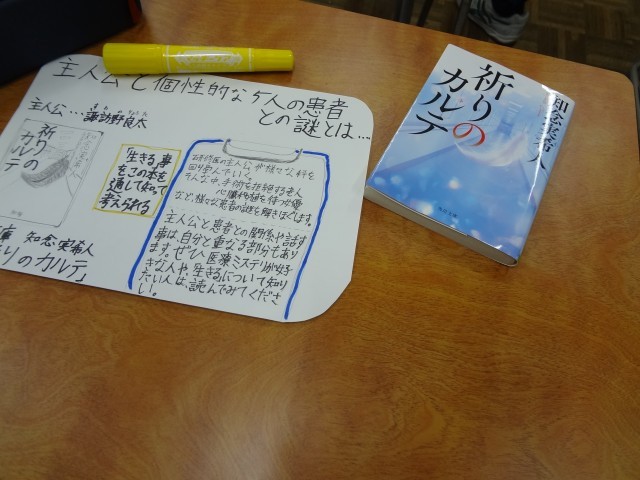 主人公と個性的な5人の患者
との謎とは…
主人公…諏訪野良太
祈りの
カルテ
「生きる」事
をこの本を
通してあって
考えられる
研修医の主人公が様々な科を
回り学んでいく。
そんな中、手術を拒絶する老人
心臓移植を待つ女優
など、様々な患者の謎を解きほぐします。
主人公と患者との関係や話す
事は、自分と重なる部分もあり
ます。ぜひ、医療ミステリが好
きな人や、生きるについて知り
たい人は、読んでみてくださ
い。
庫 知念実希人
りのカルテ」
祈りの
カルテ
知念実希人